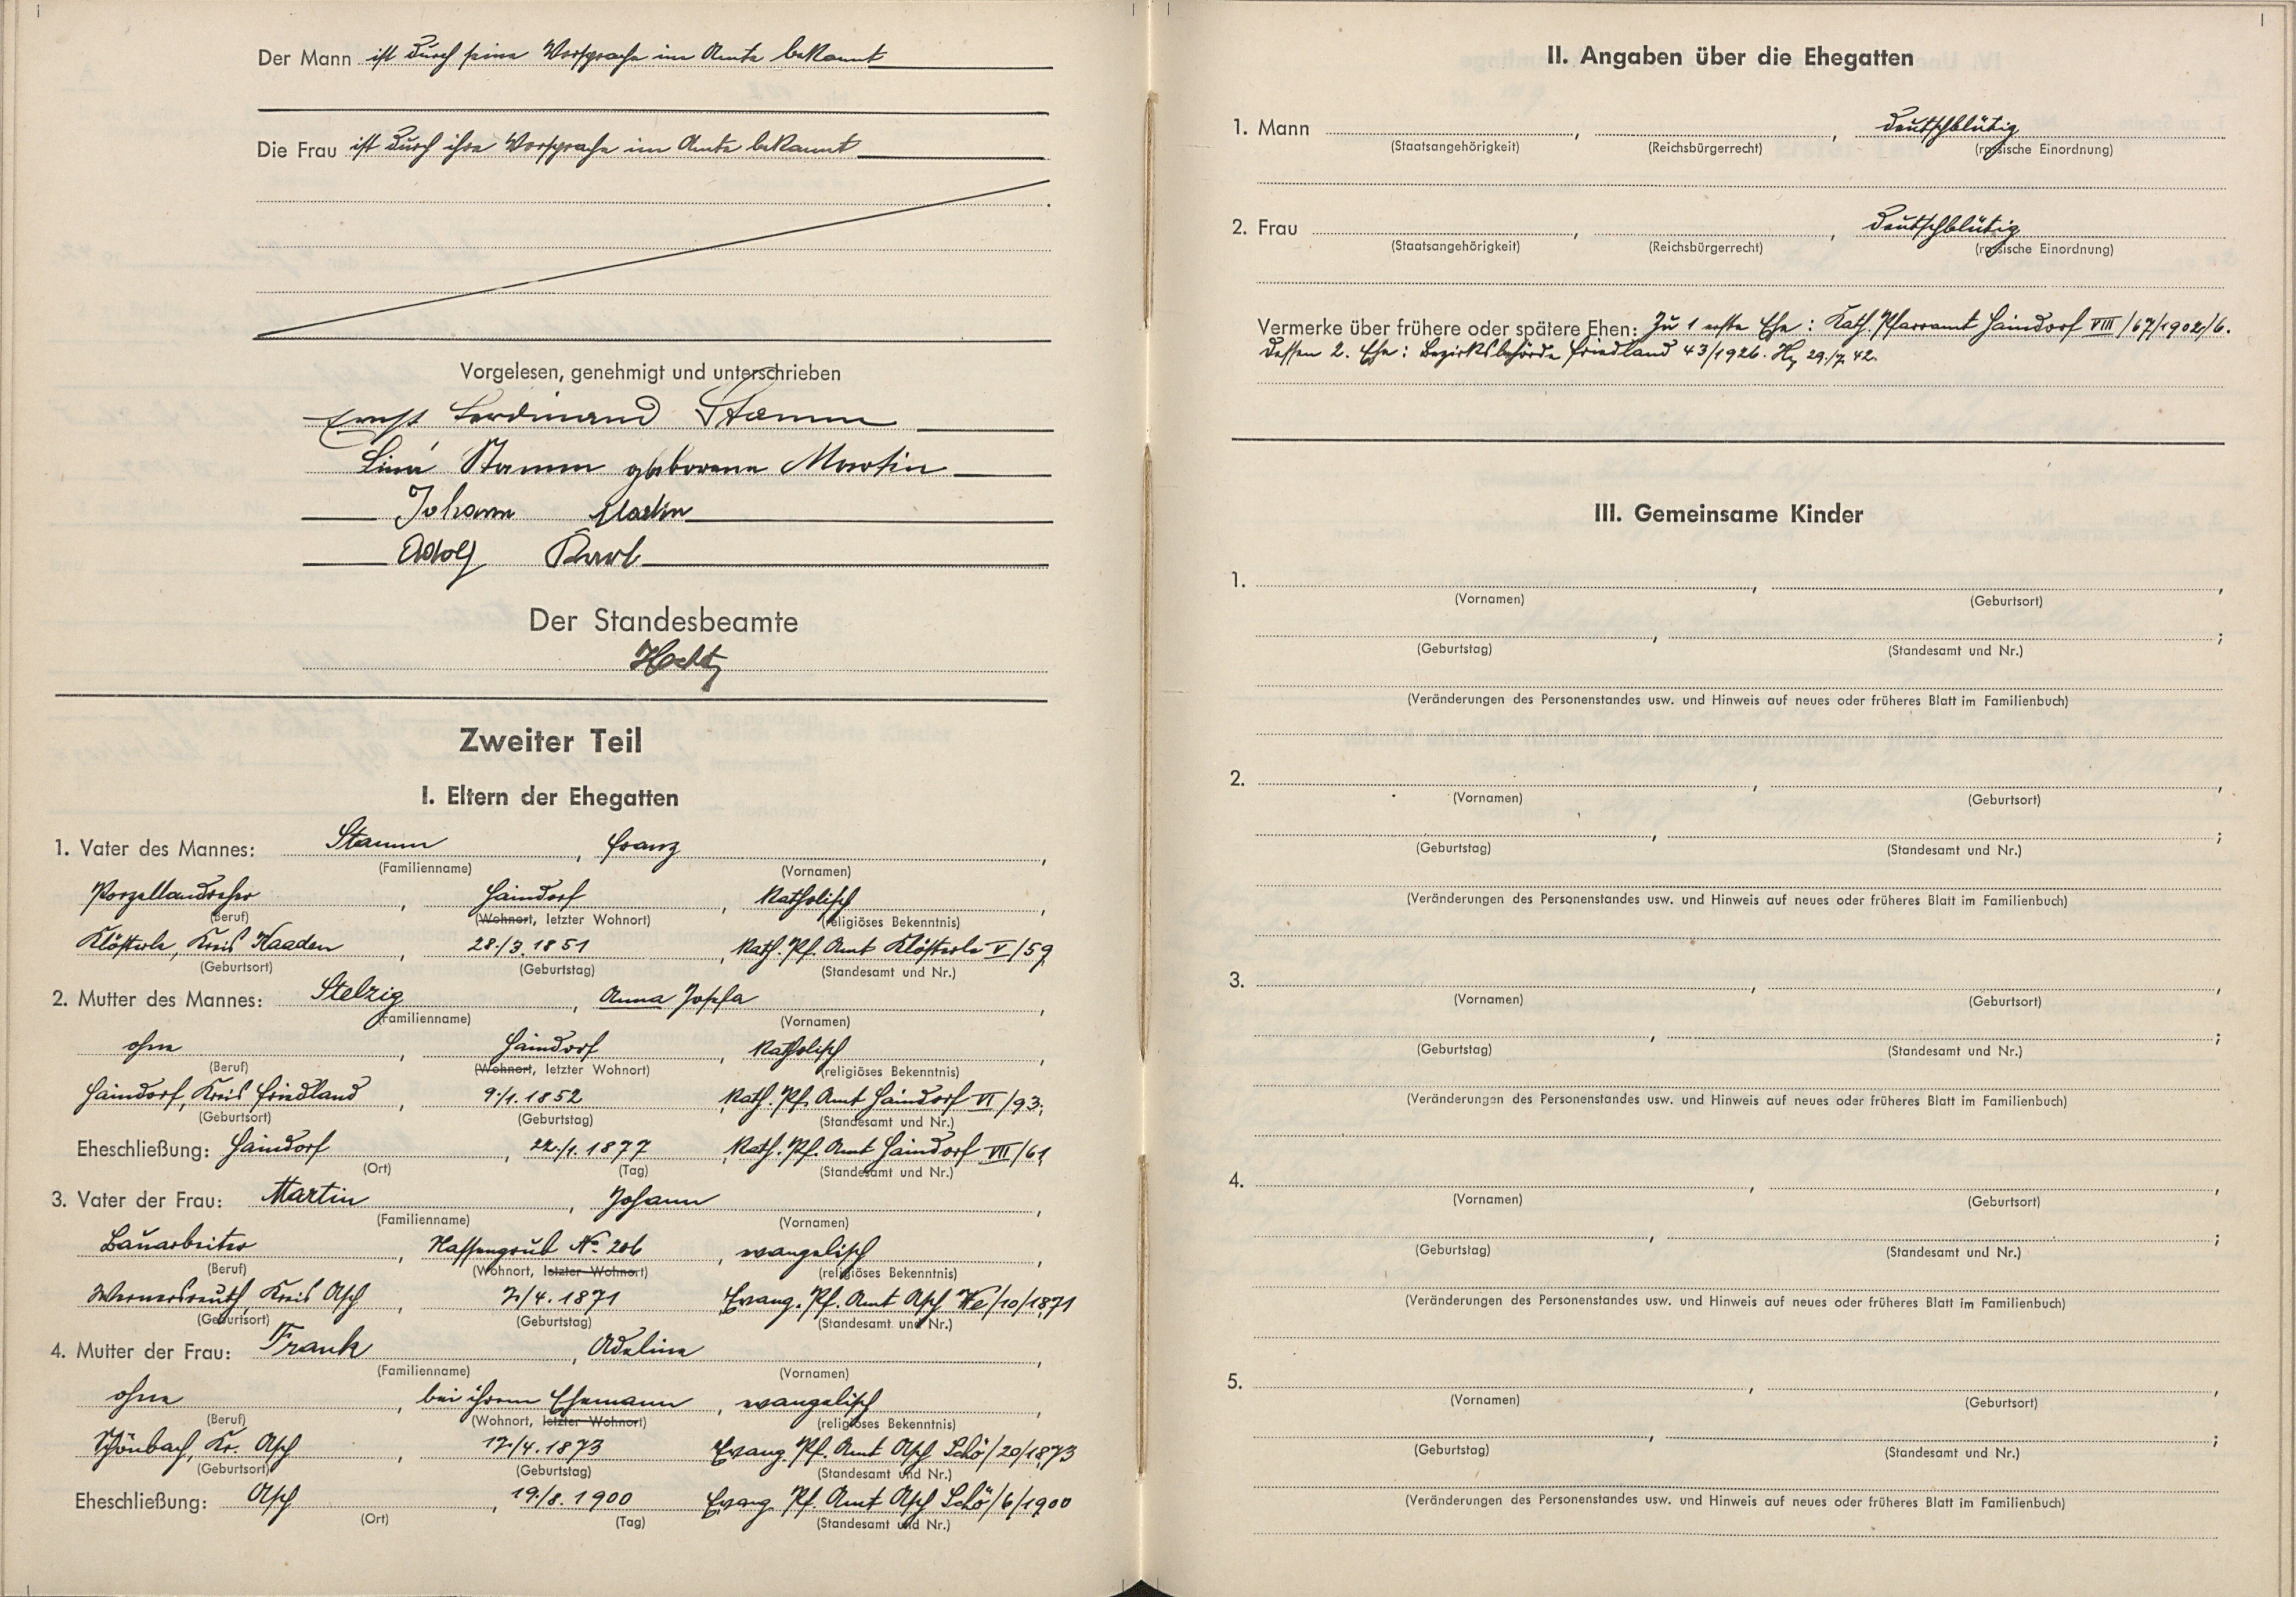 Der Mann ist durch seine Vorsprache im Amte bekannt
Die Frau ist durch ihre Vorsprache im Amte bekannt
Vorgelesen, genehmigt und unterschrieben
Ernst Ferdinand Stamm
Lina Stamm geborene Martin
Johann Martin
Adolf Karl
Der Standesbeamte
Zweiter Teil
I. Eltern der Ehegatten
1. Vater des Mannes: Stamm, Franz,
(Familienname) (Vornamen)
Porzellandreher, Haindorf, katholisch,
(Beruf) (Wohnort, letzter Wohnort) (religiöses Bekenntnis)
Klösterle, Kreis Kaaden, 28./3.1851, Kath. Pf. Amt Klösterle V/59
(Geburtsort) (Geburtstag) (Standesamt und Nr.)
2. Mutter des Mannes: Stelzig, Anna Josefa,
(Familienname) (Vornamen)
ohne, Haindorf, katholisch,
(Beruf) (Wohnort, letzter Wohnort) (religiöses Bekenntnis)
Haindorf, Kreis Friedland, 9./1.1852, Kath. Pf. Amt Haindorf VI/93;
(Geburtsort) (Geburtstag) (Standesamt und Nr.)
Eheschließung: Haindorf, 22./1.1877, Kath. Pf. Amt Haindorf VIII/61
(Ort) (Tag) (Standesamt und Nr.)
3. Vater der Frau: Martin, Johann,
(Familienname) (Vornamen)
Bauarbeiter, Nassengrub No. 206, evangelisch,
(Beruf) (Wohnort, letzter Wohnort) (religiöses Bekenntnis)
Wernersreuth, Kreis Asch, 7./4.1871 Evang. Pf. Amt Asch We/10/1871
(Geburtsort) (Geburtstag) (Standesamt und Nr.)
4. Mutter der Frau: Frank, Adeline,
(Familienname) (Vornamen)
ohne, bei ihrem Ehemann, evangelisch,
(Beruf) (Wohnort, letzter Wohnort) (religiöses Bekenntnis)
Schönbach, Kr. Asch, 17./4.1873 Evang. Pf. Amt Asch Schö/20/1873
(Geburtsort) (Geburtstag) (Standesamt und Nr.)
Eheschließung: Asch, 19./8.1900 Evang. Pf. Amt Asch Schö/6/1900
(Ort) (Tag) (Standesamt und Nr.)
II. Angaben über die Ehegatten
1. Mann , , deutschblütig
(Staatsangehörigkeit) (Reichsbürgerrecht) (rassische Einordnung)
2. Frau , , deutschblütig
(Staatsangehörigkeit) (Reichsbürgerrecht) (rassische Einordnung)
Vermerke über frühere oder spätere Ehen: Zu 1 erste Ehe: Kath. Pfarramt Haindorf VIII/67/1902/6.
dessen 2. Ehe: Bezirksbehörde Friedland 43/1926. 29./7.42.
III. Gemeinsame Kinder
1. , ,
(Vornamen) (Geburtsort)
, ;
(Geburtstag) (Standesamt und Nr.)
(Veränderungen des Personenstandes usw. und Hinweis auf neues oder früheres Blatt im Familienbuch)
2. , ,
(Vornamen) (Geburtsort)
, ;
(Geburtstag) (Standesamt und Nr.)
(Veränderungen des Personenstandes usw. und Hinweis auf neues oder früheres Blatt im Familienbuch)
3. , ,
(Vornamen) (Geburtsort)
, ;
(Geburtstag) (Standesamt und Nr.)
(Veränderungen des Personenstandes usw. und Hinweis auf neues oder früheres Blatt im Familienbuch)
4. , ,
(Vornamen) (Geburtsort)
, ;
(Geburtstag) (Standesamt und Nr.)
(Veränderungen des Personenstandes usw. und Hinweis auf neues oder früheres Blatt im Familienbuch)
5. , ,
(Vornamen) (Geburtsort)
, ;
(Geburtstag) (Standesamt und Nr.)
(Veränderungen des Personenstandes usw. und Hinweis auf neues oder früheres Blatt im Familienbuch)